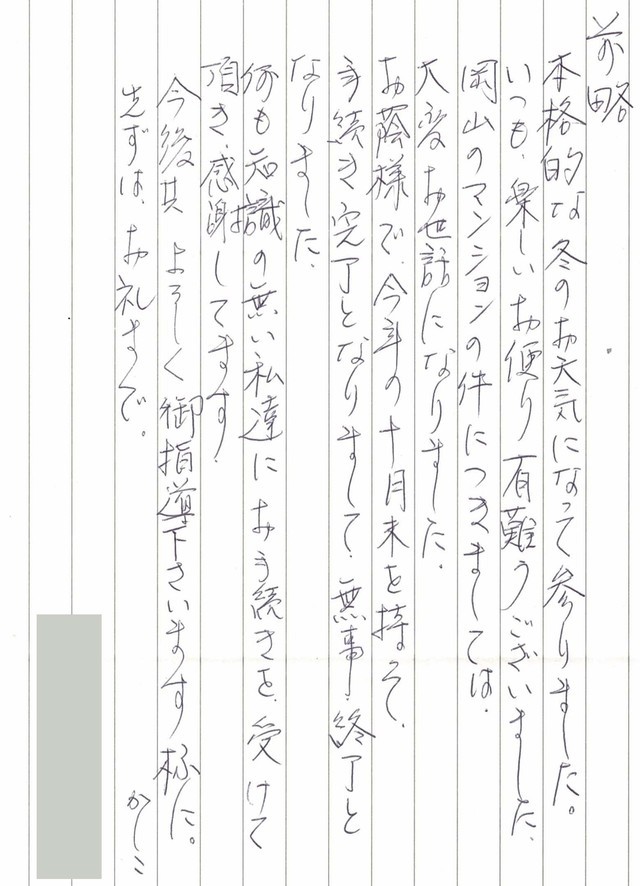 前略
本格的な冬のお天気になって参りました。
いつも、楽しいお便り有難うございました、
岡山のマンションの件につきましては、
大変お世話になりました。
お蔭様で、今年の十月末を持って、
手続き完了となりまして、無事、終了と
なりました、
何も知識の無い私達にお手続きを、受けて
頂き、感謝してます、
今後共よろしく御指導下さいます様に。
先ずは、お礼まで。
かしこ